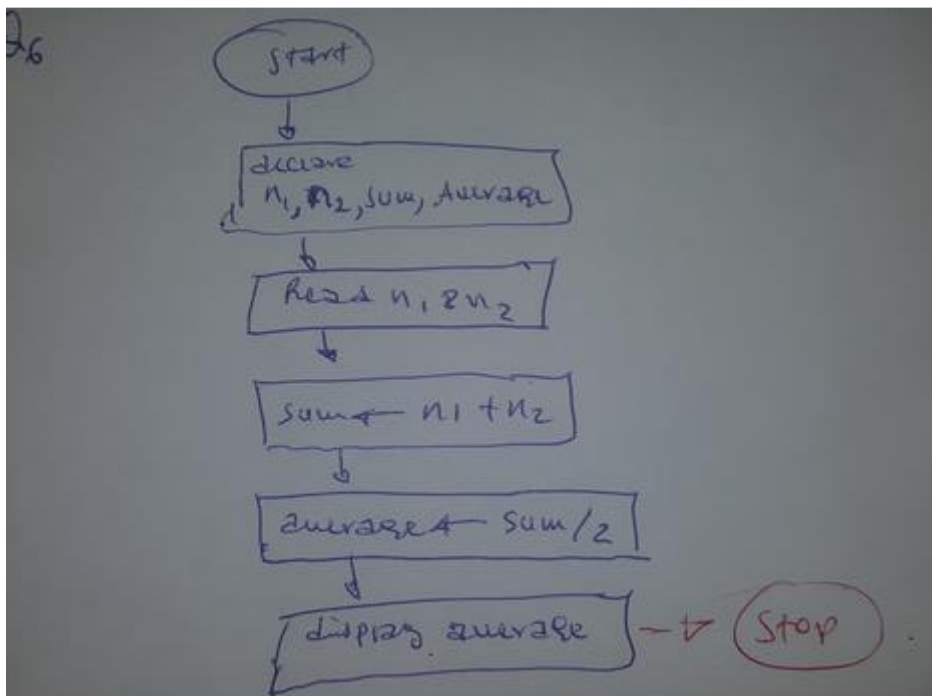 Q6
Start
declare
n1, n2, sum, Average
Read n1 & n2
sum ← n1 + n2
average ← sum/2
display average
Stop